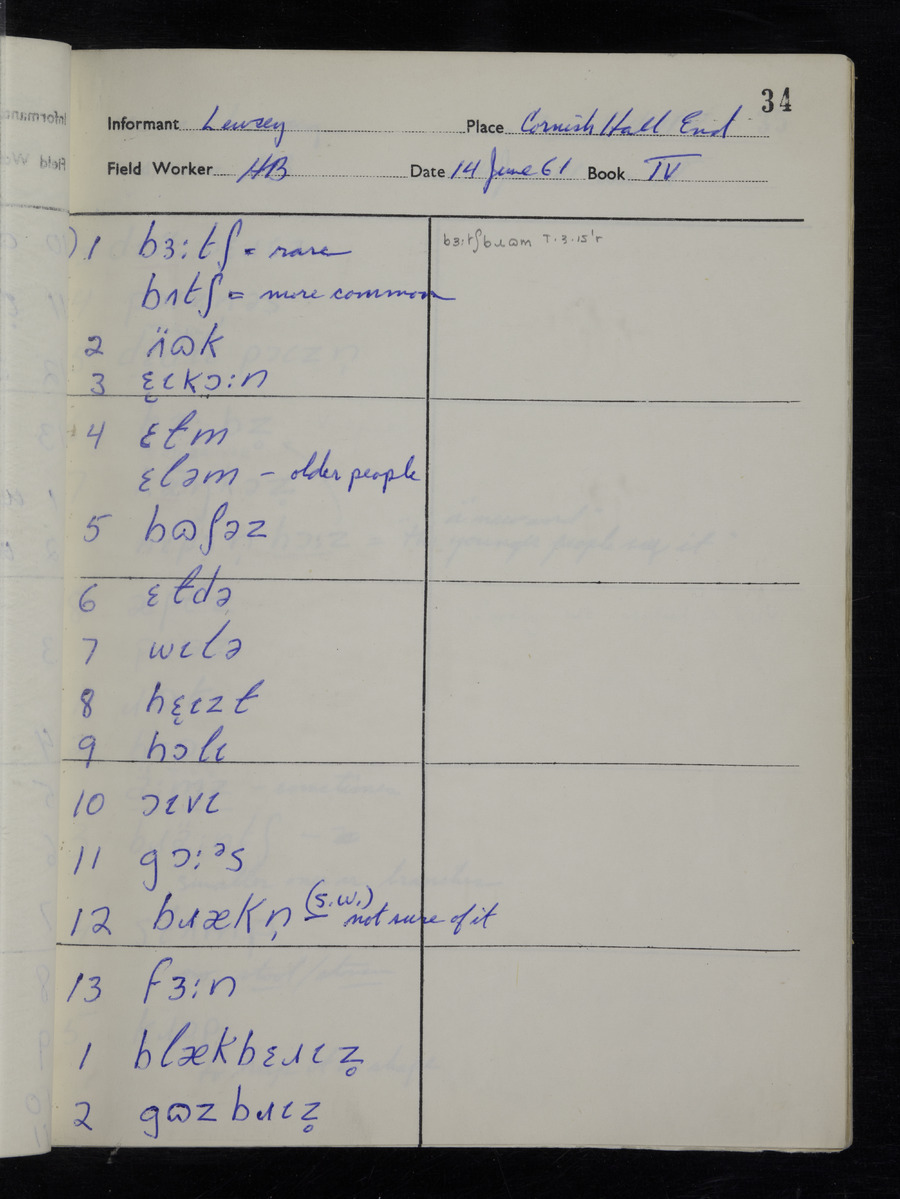 34
Informant Lewsey Place Cornish Hall End
Field Worker HB Date 14 June 61 Book IV
) 1 bɜ:tʃ = rare
bɜ:tʃbɹɷm T.3.15'r
bʌtʃ = more common
2 ʌ̈ɷk
3 ɛ̨ɩkɔ:n
4 ɛɫm
ɛləm – older people
5 bɷʃəz
6 ɛɫdə
7 wɩlə
8 hɛ̨ɩzɫ
9 hɔlɩ
10 ɔɩvɩ
11 gɔ:ᵊs
12 bɹækn̩ (s.w.) not sure of it
13 fɜ:n
1 blækbɛɹɩz̥
2 gɷzbɹɩz̥